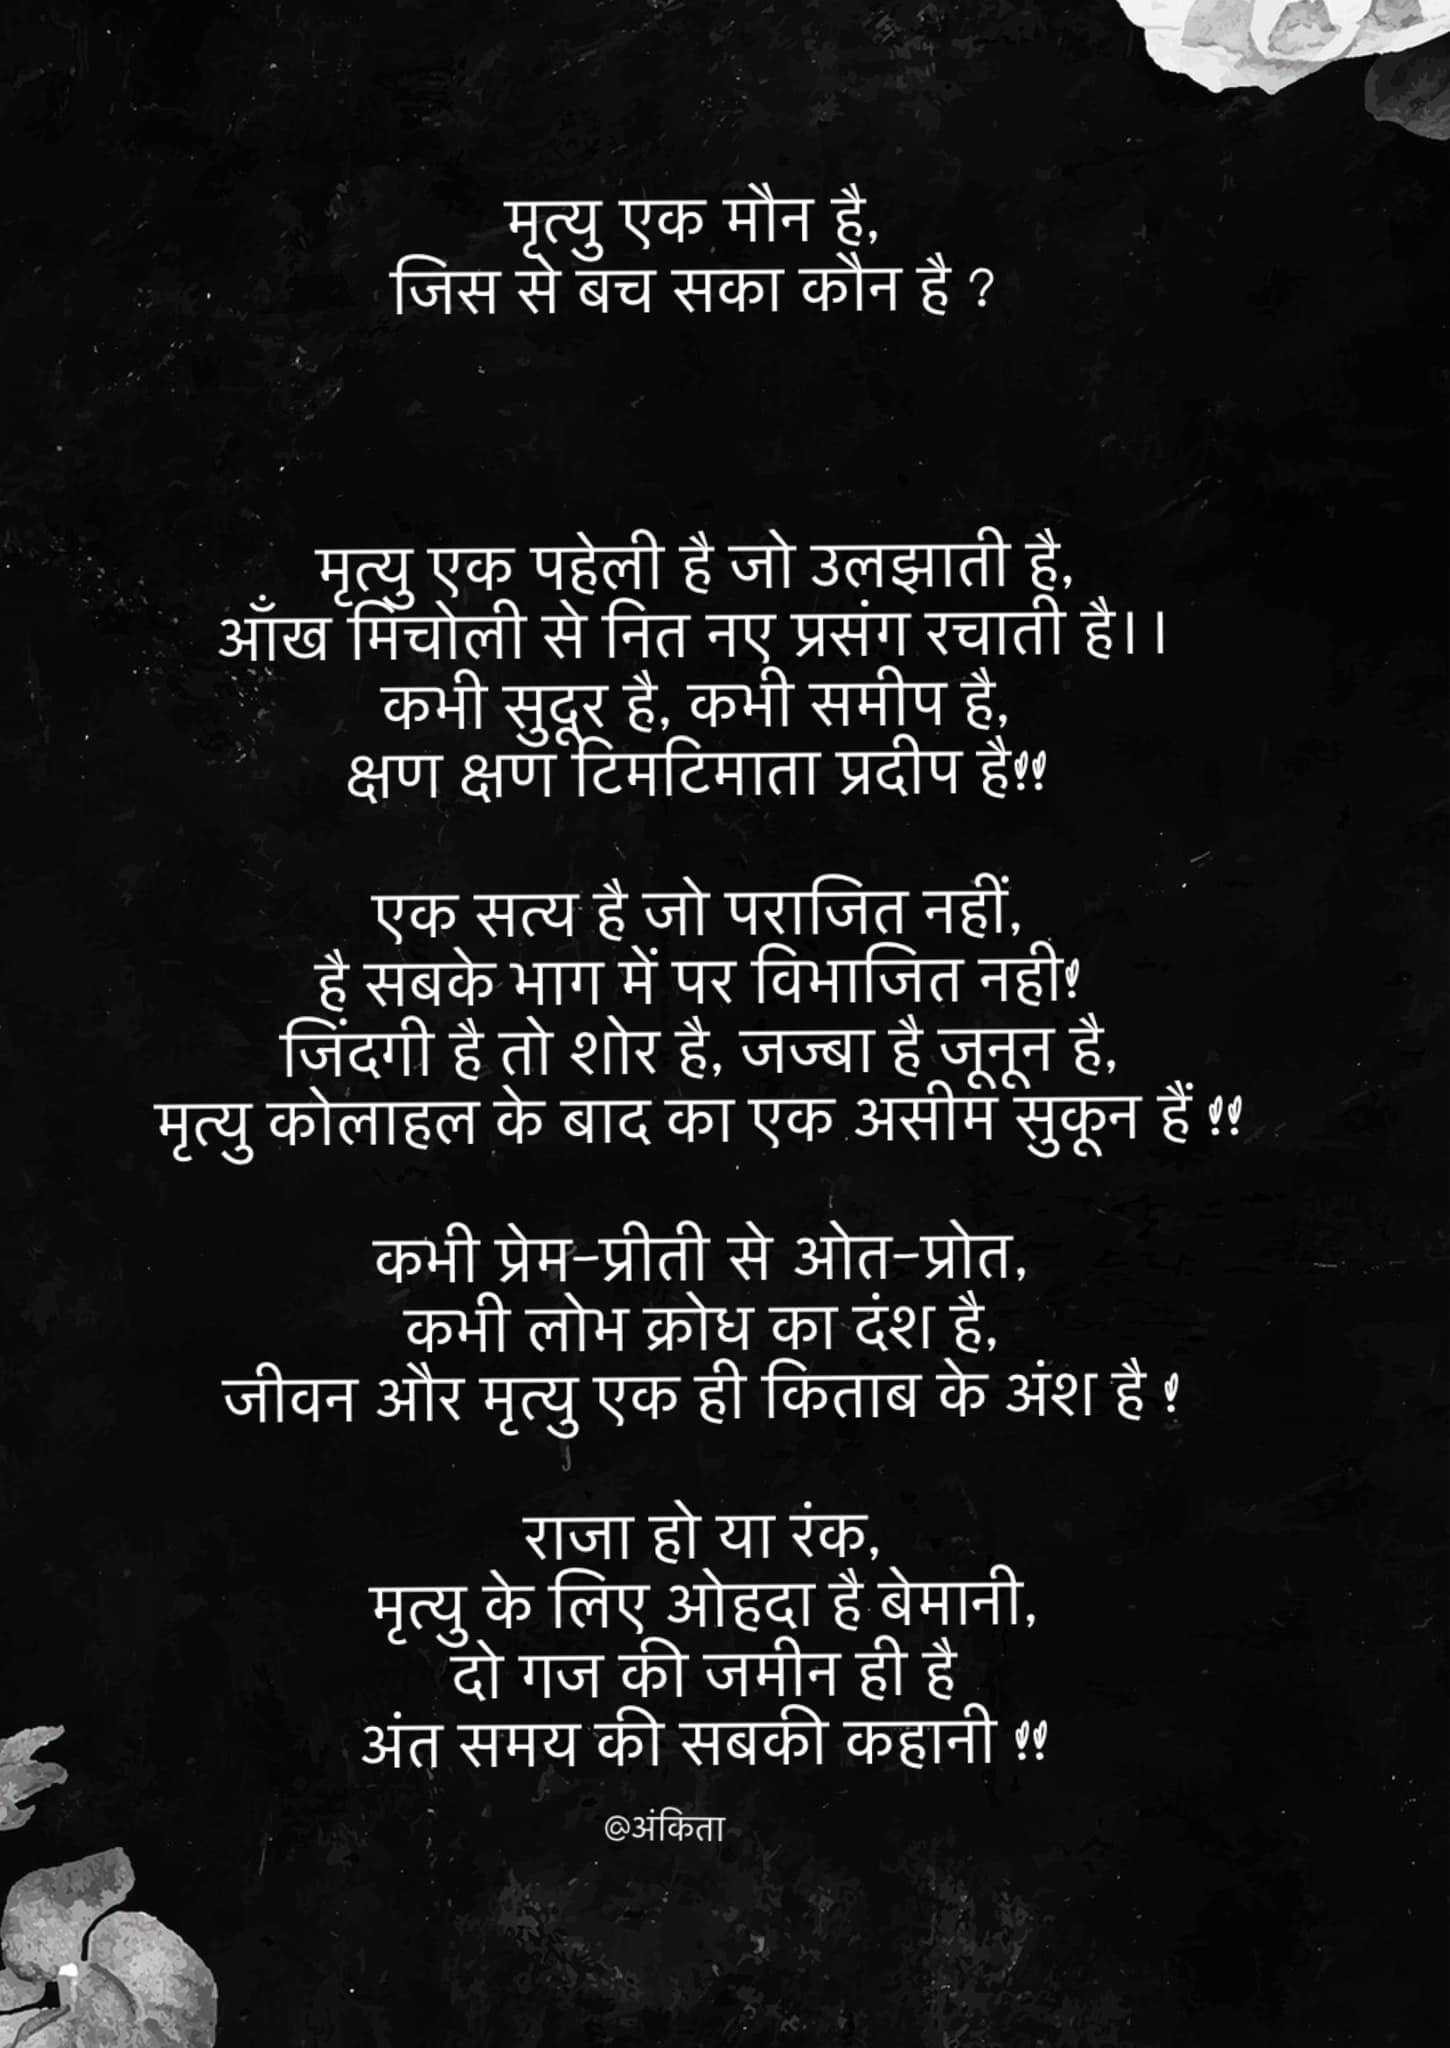 मृत्यु एक मौन है,
जिस से बच सका कौन है ?
मृत्यु एक पहेली है जो उलझाती है,
आँख मिंचोली से नित नए प्रसंग रचाती है।।
कभी सुदूर है, कभी समीप है,
क्षण क्षण टिमटिमाता प्रदीप है!!
एक सत्य है जो पराजित नहीं,
है सबके भाग में पर विभाजित नही!
जिंदगी है तो शोर है, जज्बा है जूनून है,
मृत्यु कोलाहल के बाद का एक असीम सुकून हैं !!
कभी प्रेम-प्रीती से ओत-प्रोत,
कभी लोभ क्रोध का दंश है,
जीवन और मृत्यु एक ही किताब के अंश है !
राजा हो या रंक,
मृत्यु के लिए ओहदा है बेमानी,
दो गज की जमीन ही है
अंत समय की सबकी कहानी !!
@अंकिता